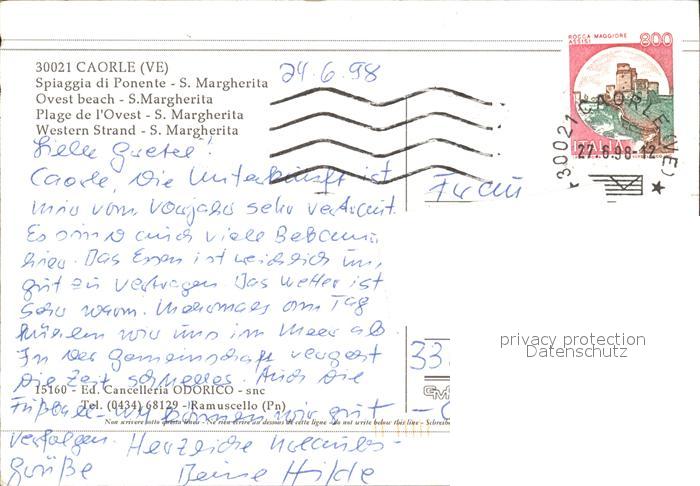 30021 CAORLE (VE)
Spiaggia di Ponente - S. Margherita
Ovest beach - S.Margherita
Plage de l'Ovest - S. Margherita
Western Strand - S. Margherita
24.6.98
ROCCA MAGGIORE
ASSISI
800
30021 CAORLE (VE)
27.6.98-12
Liebe Gretel!
Caorle, die Unterkunft ist
mir vom Vorjahr sehr vertraut.
Es sind auch viele Bekannte
hier. Das Essen ist reichlich und
gut zu vertragen. Das Wetter ist
sehr warm. Mehrmals am Tag
kühlen wir uns im Meer ab.
In der Gemeinschaft vergeht
die Zeit schneller. Auch die
Fußball-WM können wir gut
verfolgen. Herzliche Urlaubs-
grüße Deine Hilde
Frau
33
privacy protection
Datenschutz
15160 - Ed. Cancelleria ODORICO - snc
Tel. (0434) 68129 - Ramuscello (Pn)
Non scrivere sotto questa linea - Ne rien écrire au dessous de cette ligne - Do not write below this line - Schreiben